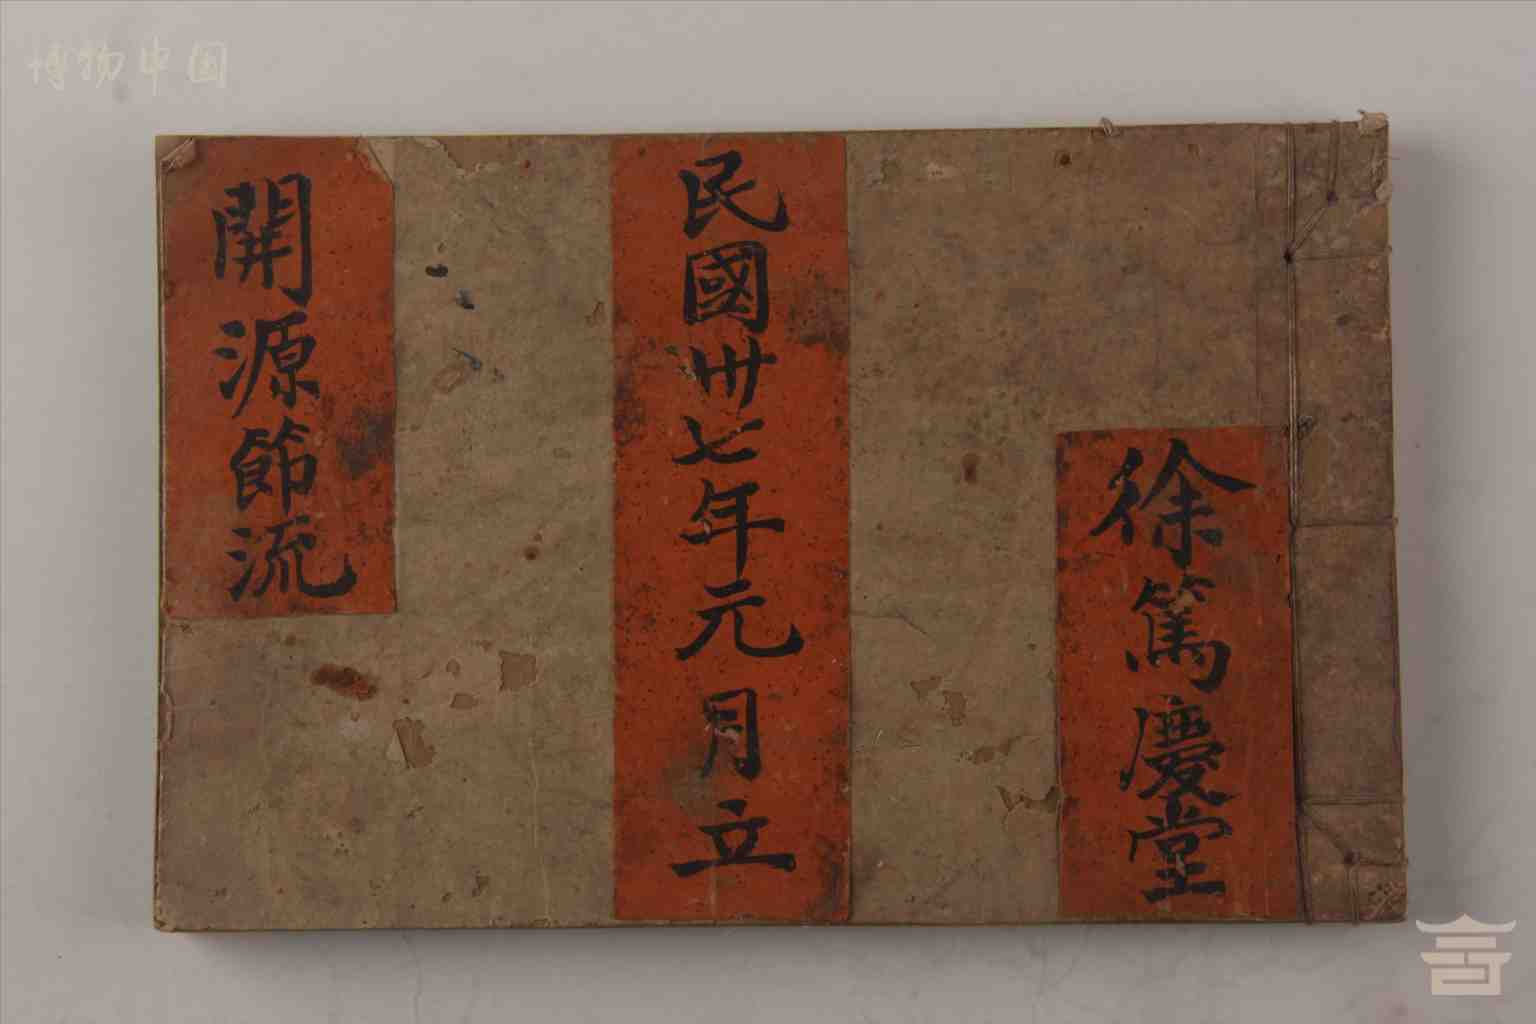 徐篤慶堂
民國卅七年元月立
開源節流
博物中国